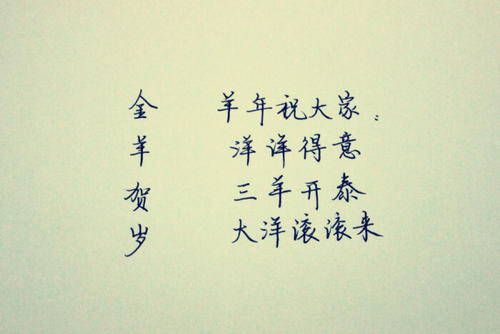 金羊贺岁
羊年祝大家：
洋洋得意
三羊开泰
大洋滚滚来